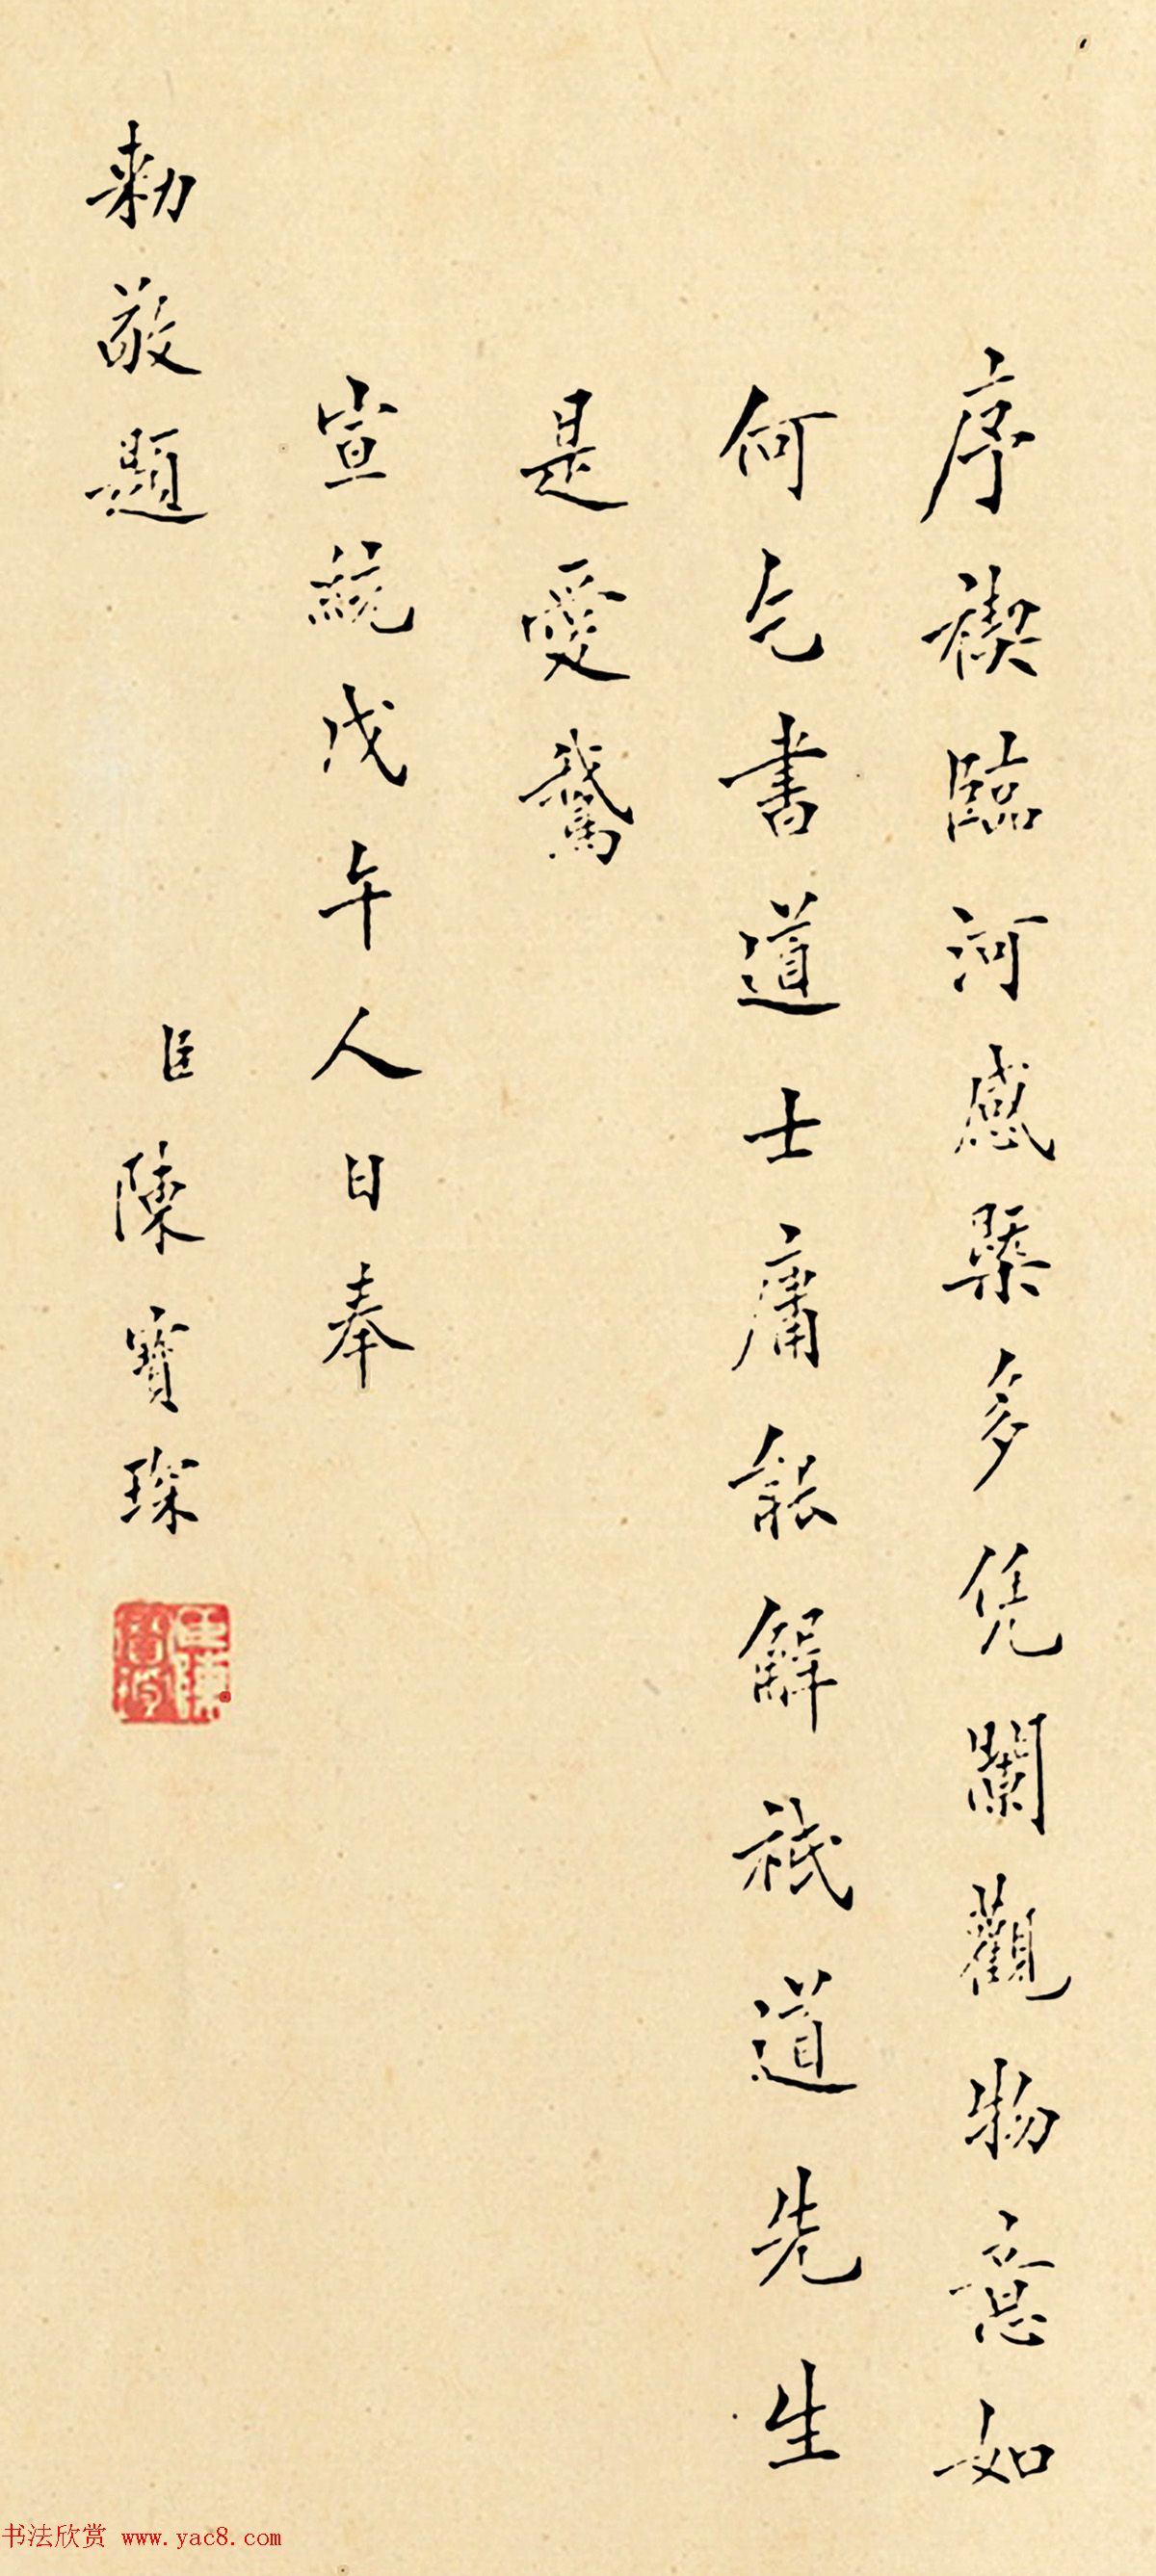 序禊臨河感槩多凭闌觀物意如
何乞書道士庸能解祗道先生
是愛鵞
宣統戊午人日奉
勅敬題
臣陳寶琛
臣陳寶琛
书法欣赏 www.yac8.com